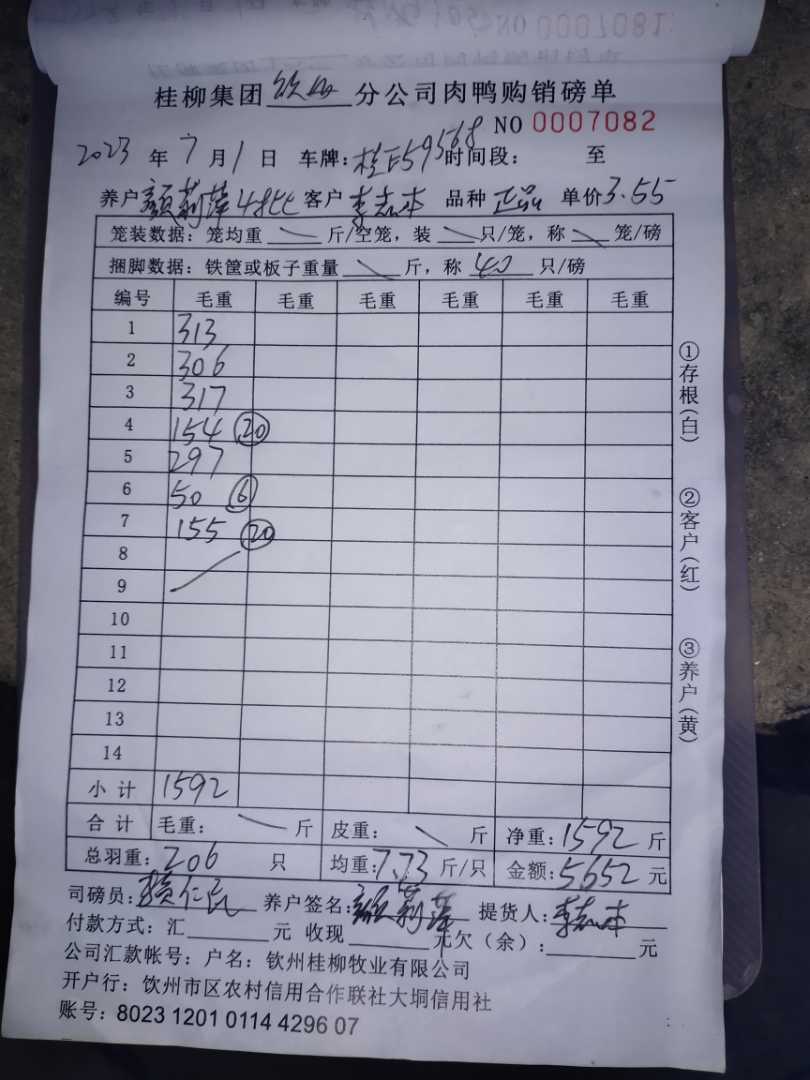 桂柳集团 钦州 分公司肉鸭购销磅单
NO 0007082
2023 年 7 月 1 日 车牌: 59568 时间段: 至
养户 颜莉萍 客户 李志本 品种 正品 单价 3.55
笼装数据: 笼均重 斤/空笼, 装 只/笼, 称 笼/磅
捆脚数据: 铁筐或板子重量 斤, 称 40 只/磅
编号 毛重 毛重 毛重 毛重 毛重 毛重
1 313
2 306
3 317
4 154 20
5 297
6 50 6
7 155 20
8
9
10
11
12
13
14
小计 1592
合计 毛重: 斤 皮重: 斤 净重: 1592 斤
总羽重: 206 只 均重: 7.73 斤/只 金额: 5652 元
司磅员: 养户签名: 颜莉萍 提货人: 李志本
付款方式: 汇 元 收现 元 欠（余）: 元
公司汇款帐号: 户名: 钦州桂柳牧业有限公司
开户行: 钦州市区农村信用合作联社大垌信用社
账号: 8023 1201 0114 4296 07
①存根(白)
②客户(红)
③养户(黄)